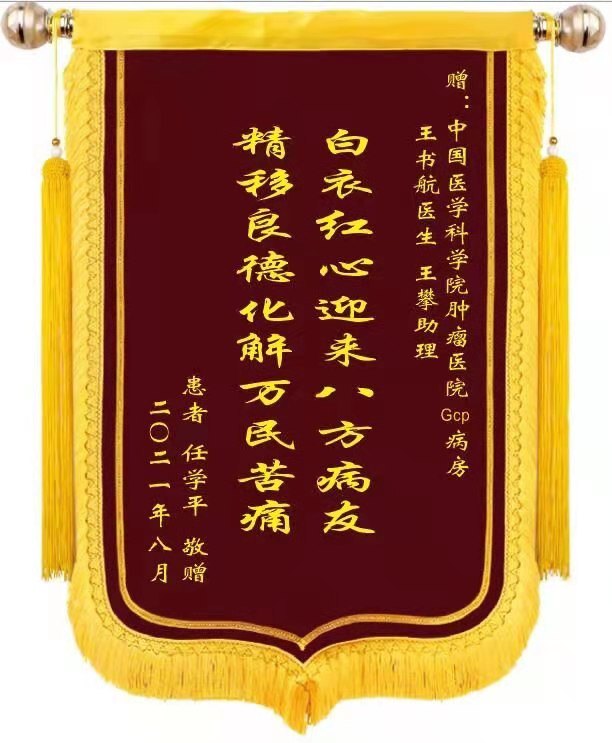 赠：中国医学科学院肿瘤医院Gcp病房
王书航医生 王攀助理
白衣红心迎来八方病友
精移良德化解万民苦痛
患者 任学平 敬赠
二〇二一年八月